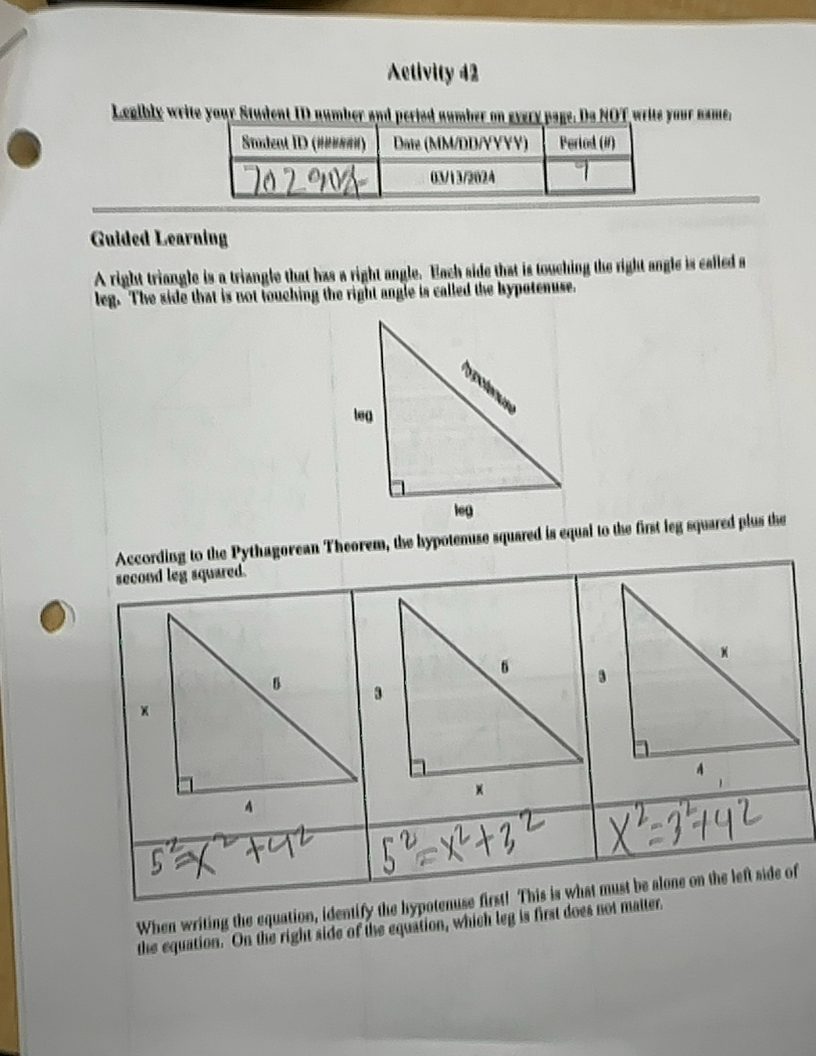 Activity 42
Legibly write your Student ID number and period number on every page. Do NOT write your name.
Student ID (######) Date (MM/DD/YYYY) Period (#)
03/13/2024
Guided Learning
A right triangle is a triangle that has a right angle. Each side that is touching the right angle is called a
leg. The side that is not touching the right angle is called the hypotenuse.
hypotenuse
leg
leg
According to the Pythagorean Theorem, the hypotenuse squared is equal to the first leg squared plus the
second leg squared.
x 5 4
3 5 x
3 x 4
5²=x²+4² 5²=x²+3² x²=3²+4²
When writing the equation, identify the hypotenuse first! This is what must be alone on the left side of
the equation. On the right side of the equation, which leg is first does not matter.